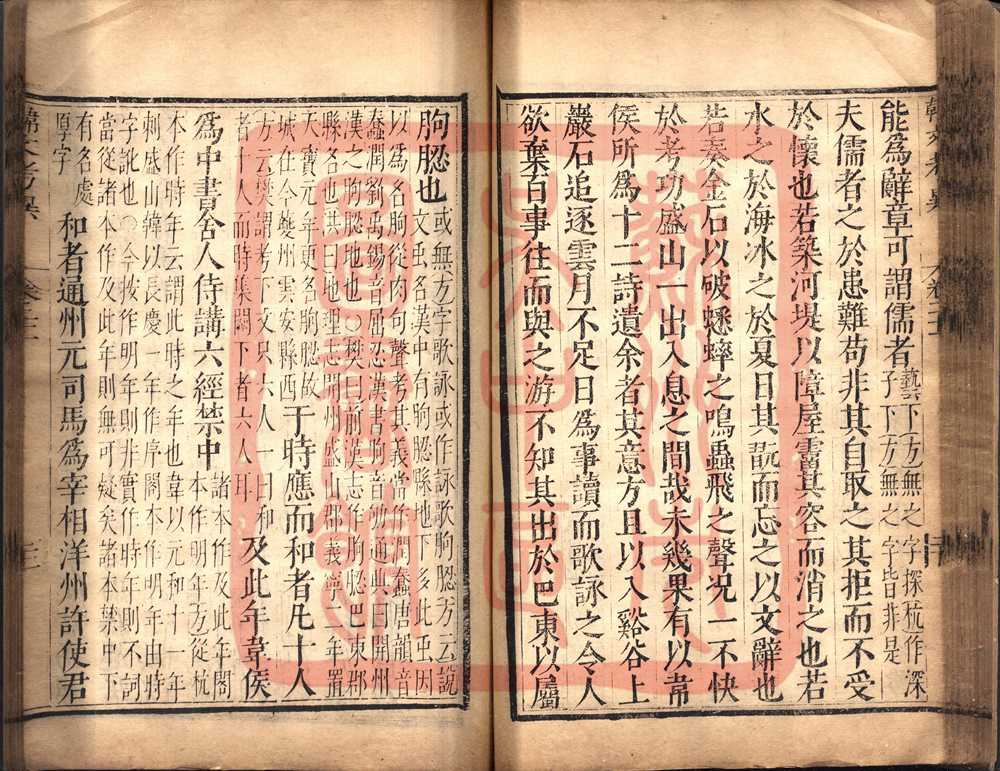 能爲辭章可謂儒者藝下方無之字探杭作深
子下方無之字皆非是
夫儒者之於患難苟非其自取之其拒而不受
於懷也若築河堤以障屋霤其容而消之也若
水之於海冰之於夏日其翫而忘之以文辭也
若奏金石以破蟋蟀之鳴蟲飛之聲況一不快
於考功盛山一出入息之間哉未幾果有以韋
侯所爲十二詩遺余者其意方且以入谿谷上
巖石追逐雲月不足日爲事讀而歌詠之令人
欲棄百事往而與之游不知其出於巴東以屬
朐䏰也或無方字歌詠或作詠歌朐䏰方云說
文虫名漢中有朐䏰縣地下多此虫因
以爲名朐從肉句聲考其義當作潤蠢唐韻音
蠢潤劉禹錫音屈忍漢書朐音劬通典曰開州
漢之朐䏰地也○樊曰前漢志作朐䏰巴東郡
縣名也洪曰地理志開州盛山郡義寧二年置
天寶元年更名朐䏰故
城在今夔州雲安縣西于時應而和者凡十人
方云樊謂考下文只六人一日和
者十人而時集闕下者六人耳及此年韋侯
爲中書舍人侍講六經禁中諸本作及此年閣
本作明年方從杭
本作時年云謂此時之年也韋以元和十一年
刺盛山韓以長慶一年作序閣本作明年由時
字訛也○今按作明年則非實作時年則不詞
當從諸本作及此年則無可疑矣諸本禁中下
有名處
厚字和者通州元司馬爲宰相洋州許使君